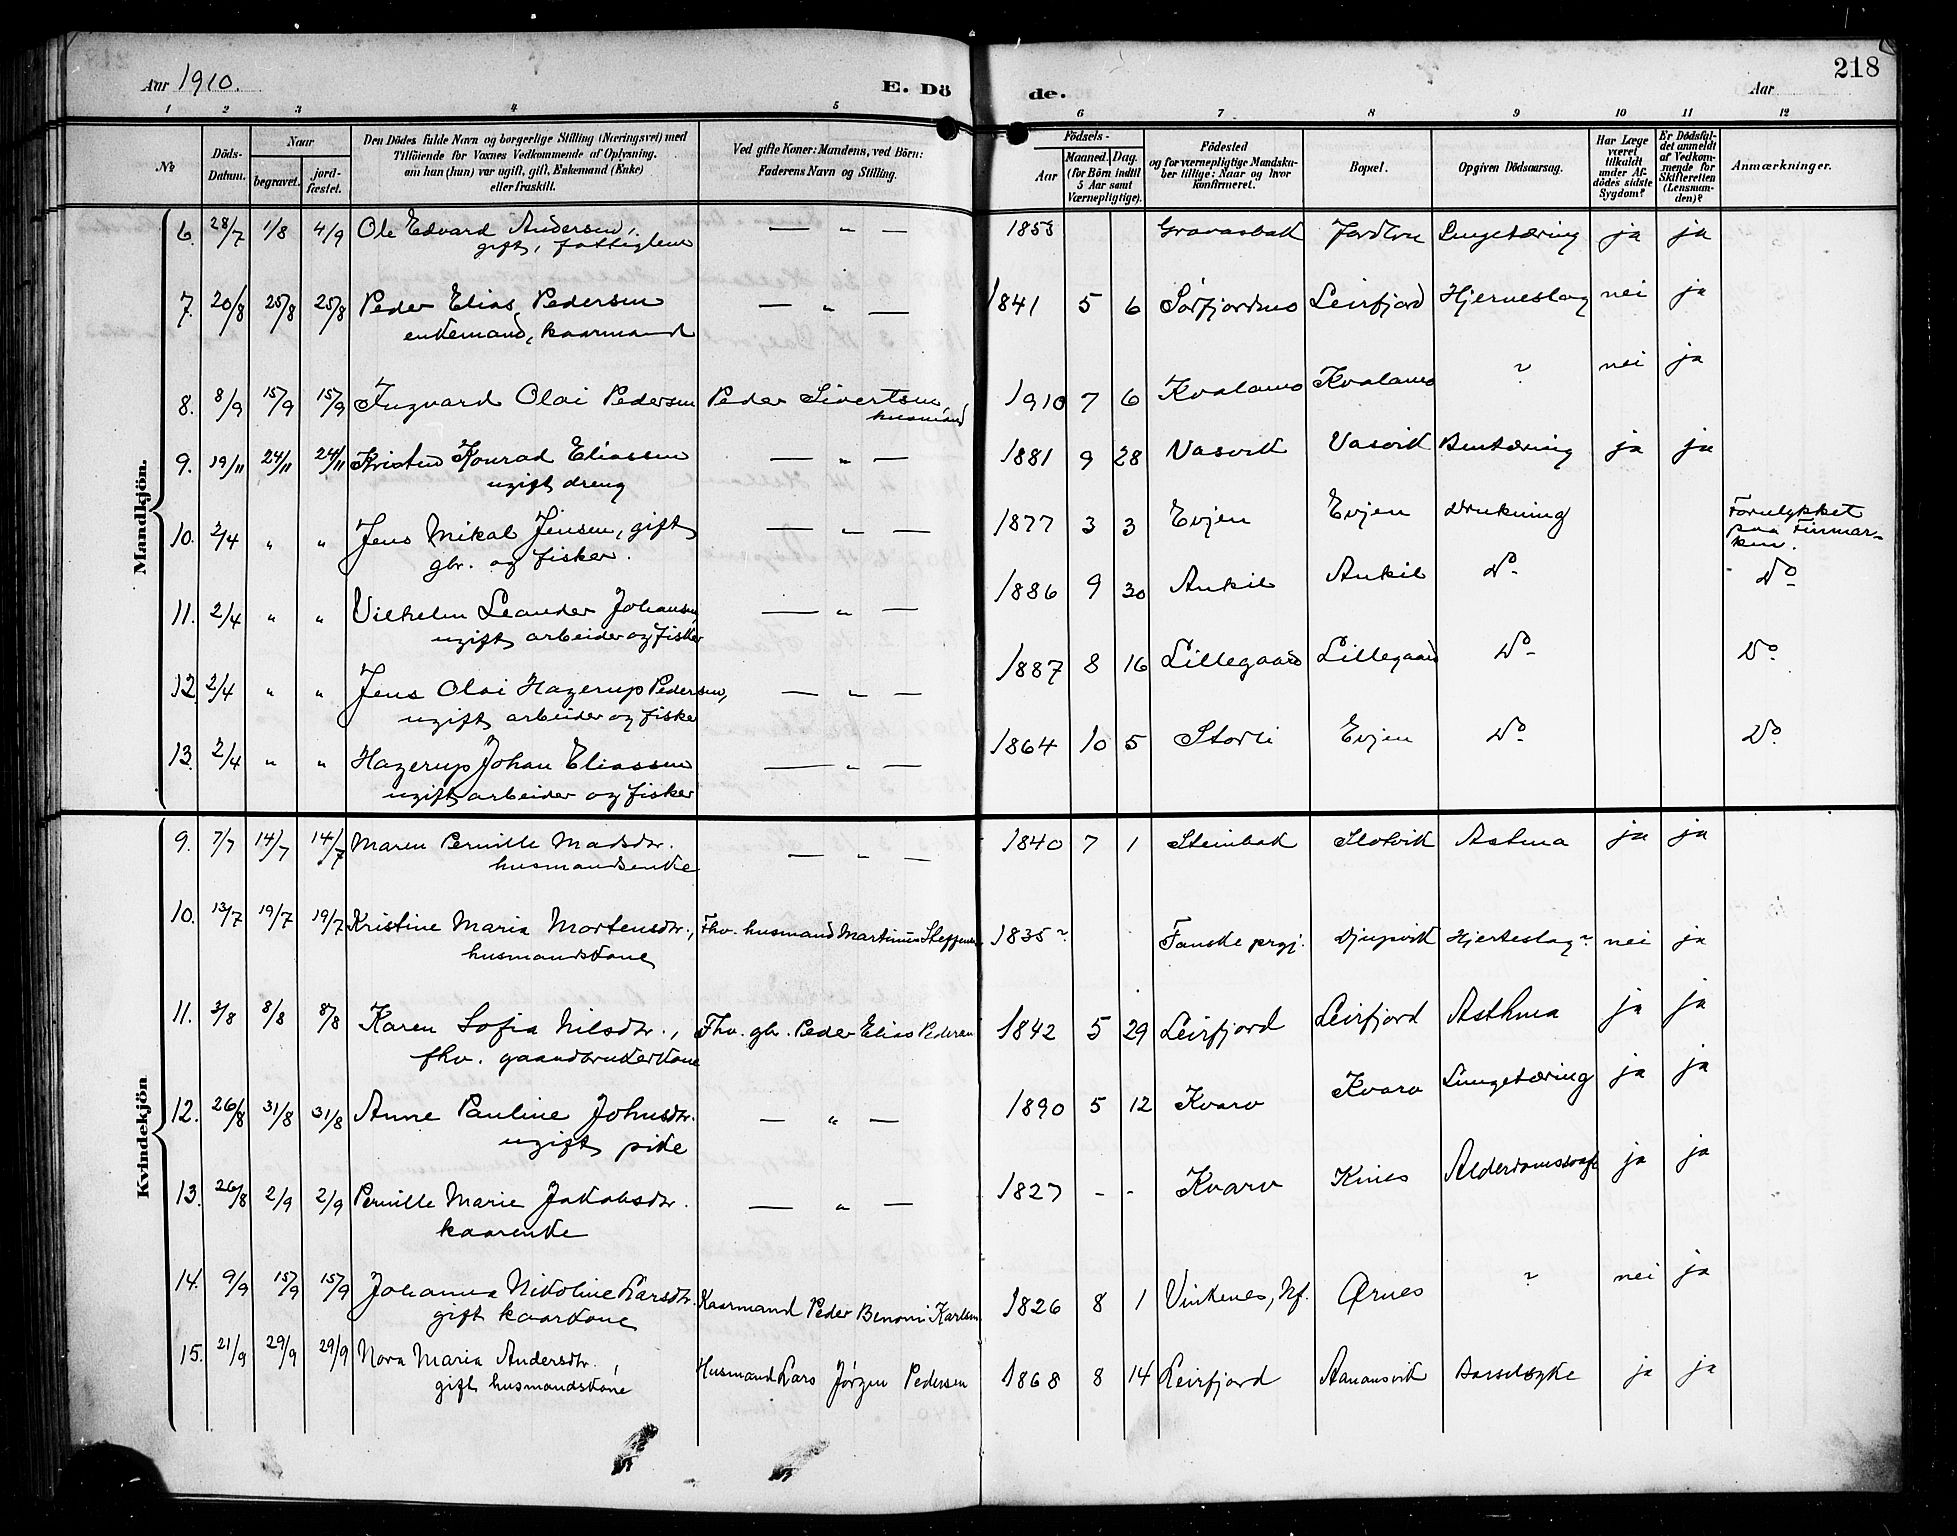 218
Aar 1910.
E. Dö
de.
Aar
1 2 3 4 5 6 7 8 9 10 11 12
№
Döds-
Datum.
Naar
begravet.
jord-
fæstet.
Den Dödes fulde Navn og borgerlige Stilling (Næringsvei) med
Tilföiende for Voxnes Vedkommende af Oplysning,
om han (hun) var ugift, gift, Enkemand (Enke)
eller fraskilt.
Ved gifte Koner: Mandens, ved Börn:
Faderens Navn og Stilling.
Födsels-
Aar
Maaned. Dag.
(for Börn indtil
5 Aar samt
Værnepligtige).
Födested
og for værnepligtige Mandsku-
ber tillige: Naar og hvor
konfirmeret.
Bopæl.
Opgiven Dödsaarsag.
Har Læge
været
tilkaldt
under Af-
dödes sidste
Sygdom?
Er Dödsfal-
det anmeldt
af Vedkom-
mende for
Skifteretten
(Lensman-
den)?
Anmærkninger.
Mandkjön.
6. 28/7 1/8 4/9 Ole Edvard Andersen, — " — 1853 Gravasbak Lungetæring ja ja
gift, fattiglem
7. 20/8 25/8 25/8 Peder Elias Pedersen — " — 1841 5 6 Sørfjordmo Leirfjord Hjerneslag nei ja
enkemand, kaarmand
8. 8/9 15/9 15/9 Ingvard Olai Pedersen Peder Sivertsen, 1910 7 6 Kvalamo Kvalamo ? nei ja
husmand
9. 19/11 24/11 24/11 Kristen Konrad Eliassen — " — 1881 9 28 Vasvik Vasvik Bentæring ja ja
ugift dreng
10. 2/4 " " Jens Mikal Jensen, gift — " — 1877 3 3 Evjen Evjen Drukning Forulykket
paa Finmar-
ken.
gbr. og fisker.
11. 2/4 " " Vilhelm Leander Johansen — " — 1886 9 30 Ankil Ankil Do - Do
ugift arbeider og fisker
12. 2/4 " " Jens Olai Hagerup Pedersen, — " — 1887 8 16 Lillegaard Lillegaard Do Do
ugift arbeider og fisker
13. 2/4 " " Hagerup Johan Eliassen — " — 1864 10 5 Storli Evjen Do Do
ugift arbeider og fisker
Kvindekjön
9. 7/7 14/7 14/7 Maren Pernille Madsdtr. — " — 1840 7 1 Steinbak Slotvik Astma ja ja
husmandsenke
10. 13/7 19/7 19/7 Kristine Maria Mortensdtr., Fhv. husmand Martinus Steffensen 1835? Fauske prgj. Djupvik Hjerteslag? nei ja
husmandskone
11. 3/8 8/8 8/8 Karen Sofia Nilsdtr., Fhv. gbr. Peder Elias Pedersen 1842 5 29 Leirfjord Leirfjord Asthma ja ja
fhv. gaardbrukerkone
12. 26/8 31/8 31/8 Anne Pauline Johnsdtr. — " — 1890 5 12 Kvarv Kvarv Lungetæring ja ja
ugift pike
13. 26/8 2/9 2/9 Pernille Marie Jakobsdtr. — " — 1827 - - Kvarv Kines Alderdomssvagh ja ja
kaarenke
14. 9/9 15/9 15/9 Johanna Nikoline Larsdtr. Kaarmand Peder Benoni Karlsen 1826 8 1 Vinkenes, Nf. Ørnes ? nei ja
gift kaarkone
15. 21/9 29/9 29/9 Nora Maria Andersdtr., Husmand Lars Jørgen Pedersen 1868 8 14 Leirfjord Aanansvik Barselsyke ja ja
gift husmandskone